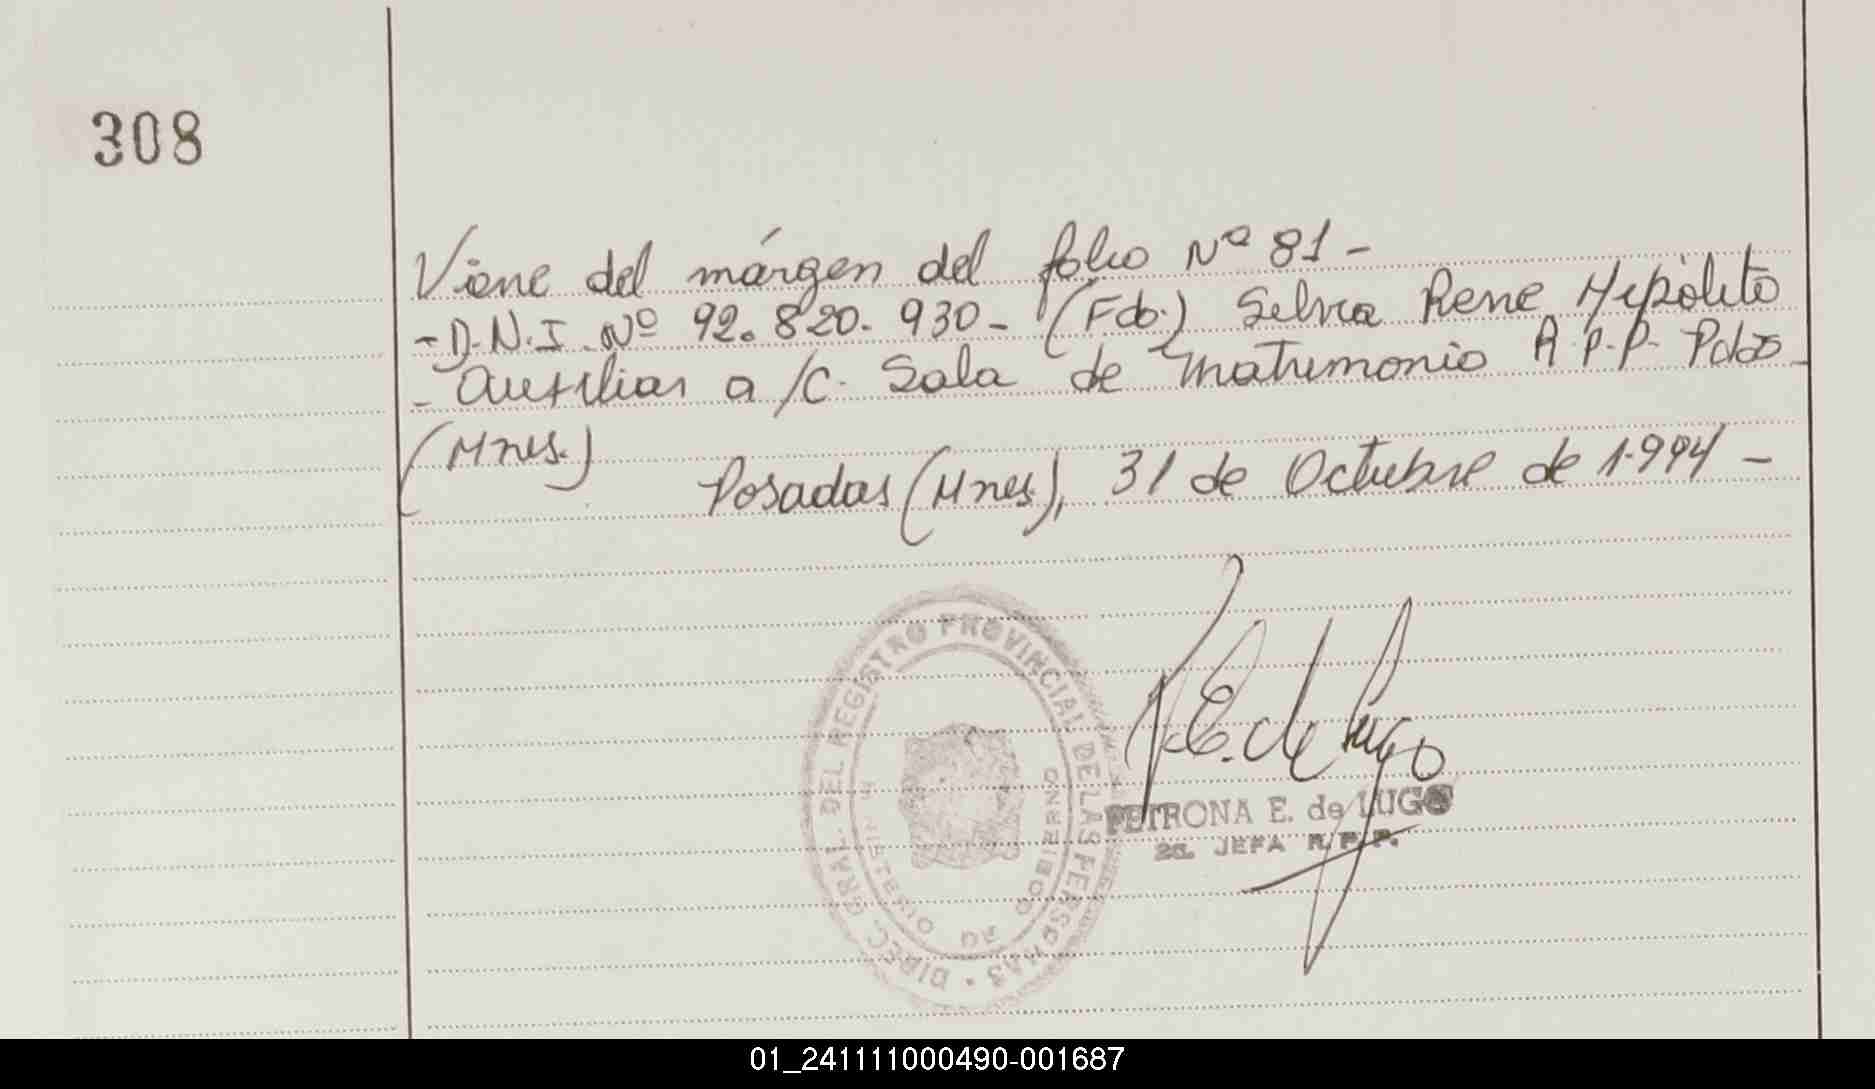 308
Viene del márgen del folio Nº 81-
-D.N.I. Nº 92.820.930- (Fdo.) Silvia Rene Hipólito
- Auxiliar a/c. Sala de Matrimonio R.P.P. Pdas-
(Mnes.)
Posadas (Mnes), 31 de Octubre de 1.994-
DIREC. GRAL. DEL REGISTRO PROVINCIAL DE LAS PERSONAS
MINISTERIO DE GOBIERNO
P. E. de Lugo
PETRONA E. de LUGO
2a. JEFA R.P.P.
01_241111000490-001687